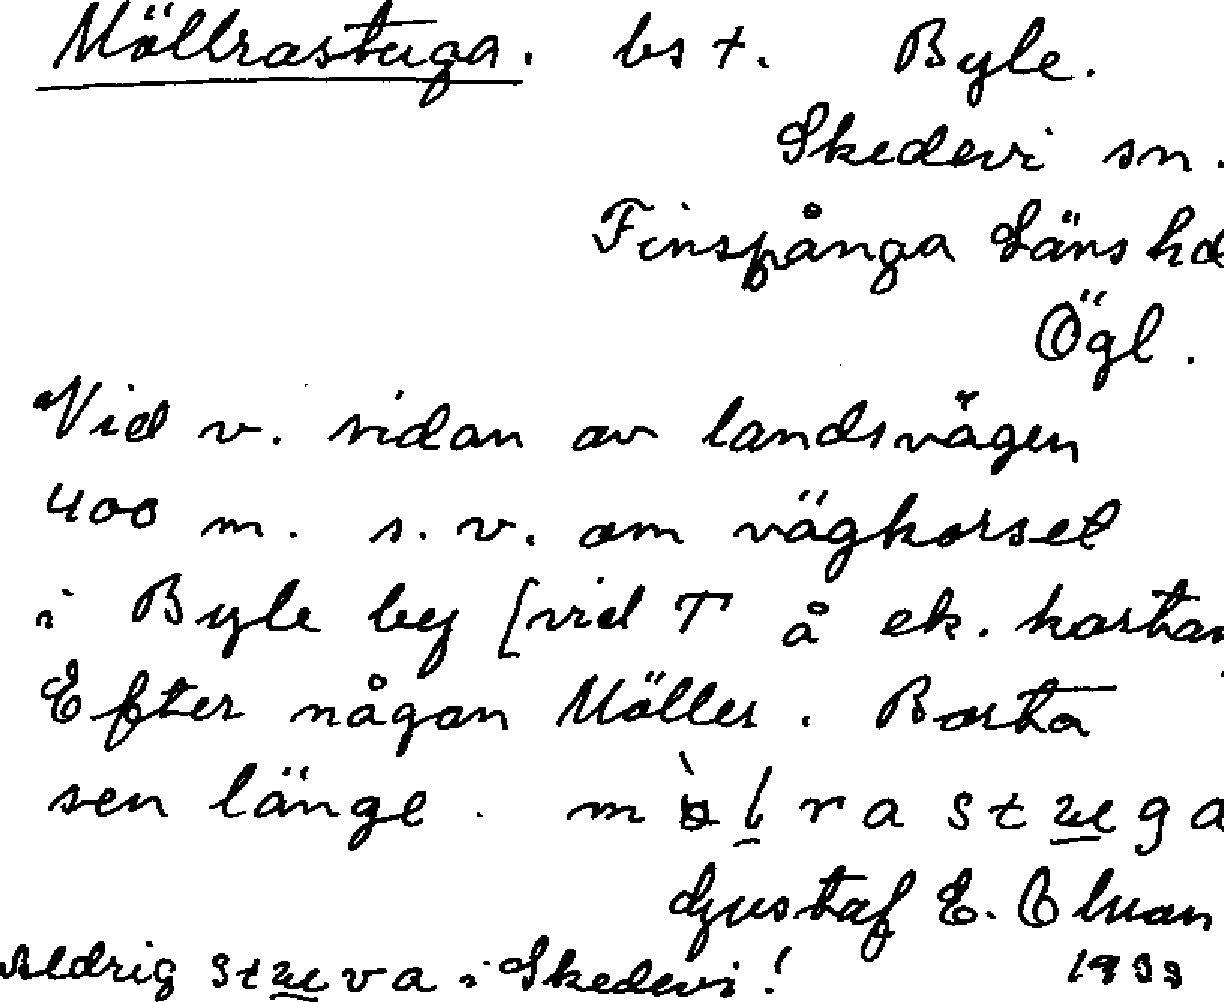 Möllrastuga. bst. Byle.
Skedevi sn.
Finspånga Läns hd
Ögl.
Vid v. sidan av landsvägen
400 m. s.v. om vägkorset
i Byle by [vid T å ek. kartan
Efter någon Möller. Borta
sen länge. 
Gustaf E.
Aldrig i Skedevi!
1933